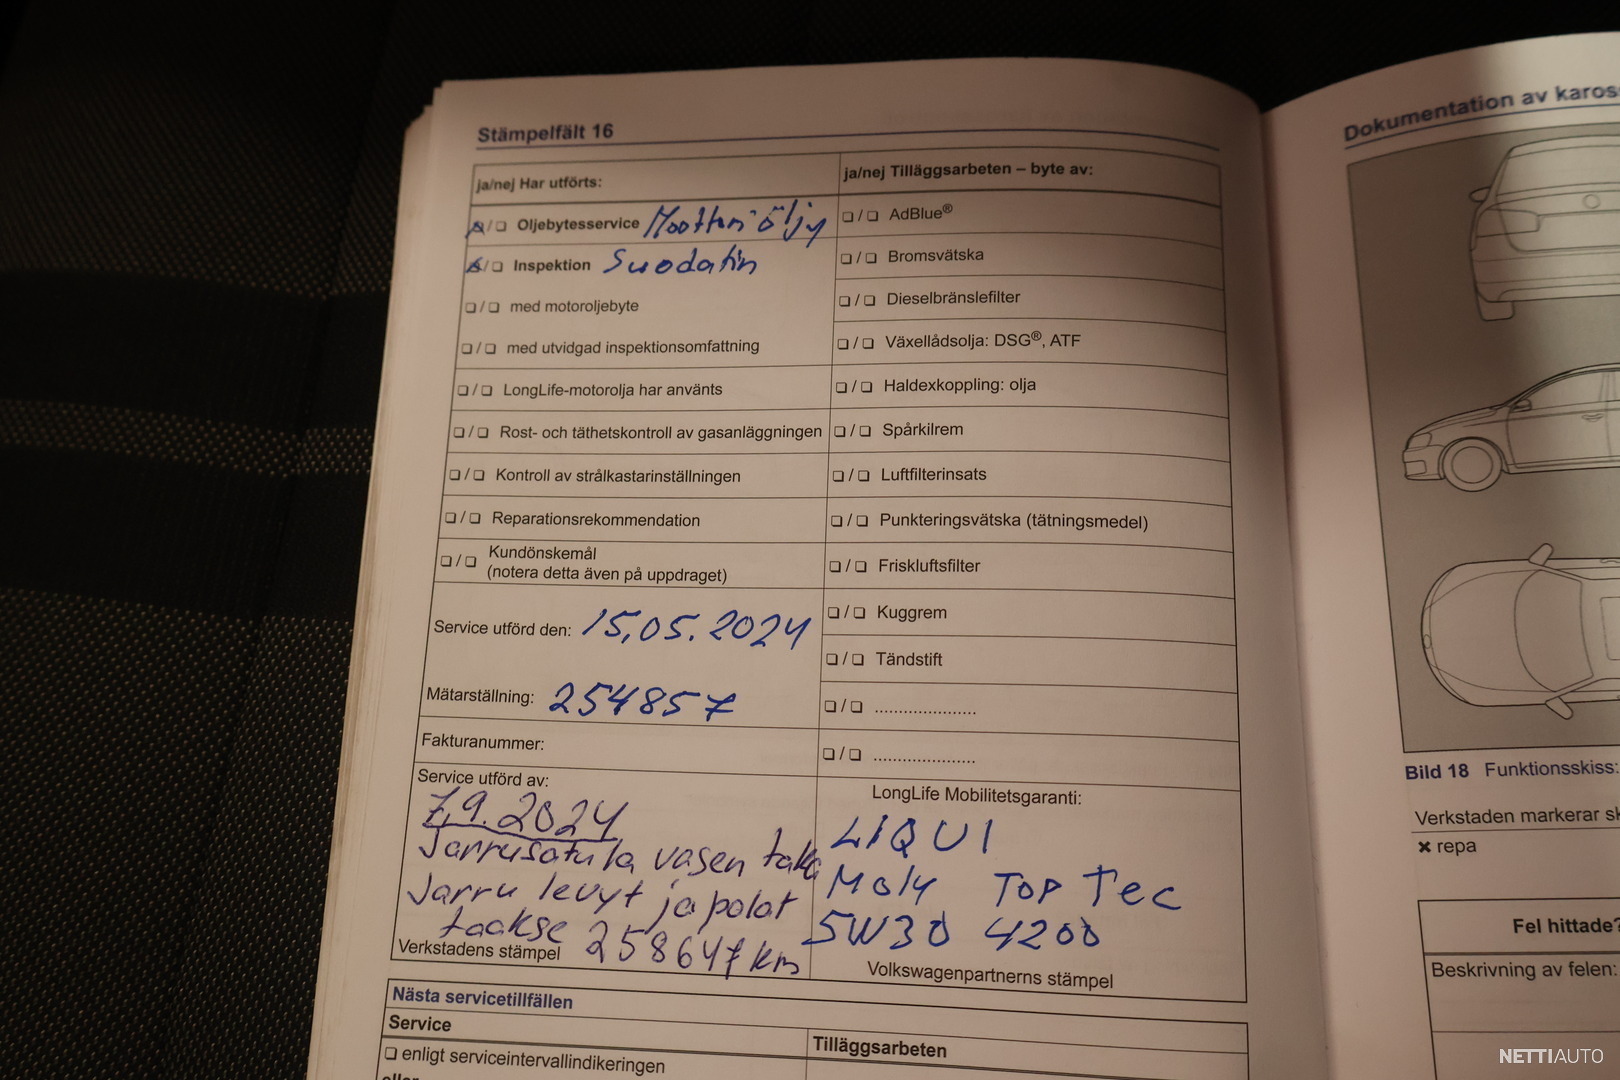 Stämpelfält 16
ja/nej Har utförts:
Oljebytesservice Moottoriöljy
Inspektion Suodatin
med motoroljebyte
med utvidgad inspektionsomfattning
LongLife-motorolja har använts
Rost- och täthetskontroll av gasanläggningen
Kontroll av strålkastarinställningen
Reparationsrekommendation
Kundönskemål
(notera detta även på uppdraget)
Service utförd den: 15.05.2024
Mätarställning: 254857
Fakturanummer:
Service utförd av:
7.9.2024
Jarrusatula vasen taka
Jarru levyt ja palat
taakse 258647 km
Verkstadens stämpel
ja/nej Tilläggsarbeten – byte av:
AdBlue®
Bromsvätska
Dieselbränslefilter
Växellådsolja: DSG®, ATF
Haldexkoppling: olja
Spårkilrem
Luftfilterinsats
Punkteringsvätska (tätningsmedel)
Friskluftsfilter
Kuggrem
Tändstift
.....................
.....................
LongLife Mobilitetsgaranti:
LIQUI
Moly Top Tec
5W30 4200
Volkswagenpartnerns stämpel
Nästa servicetillfällen
Service
enligt serviceintervallindikeringen
eller
Tilläggsarbeten
Dokumentation av kaross
Bild 18 Funktionsskiss:
Verkstaden markerar sk
✖ repa
Fel hittade?
Beskrivning av felen:
NETTIAUTO